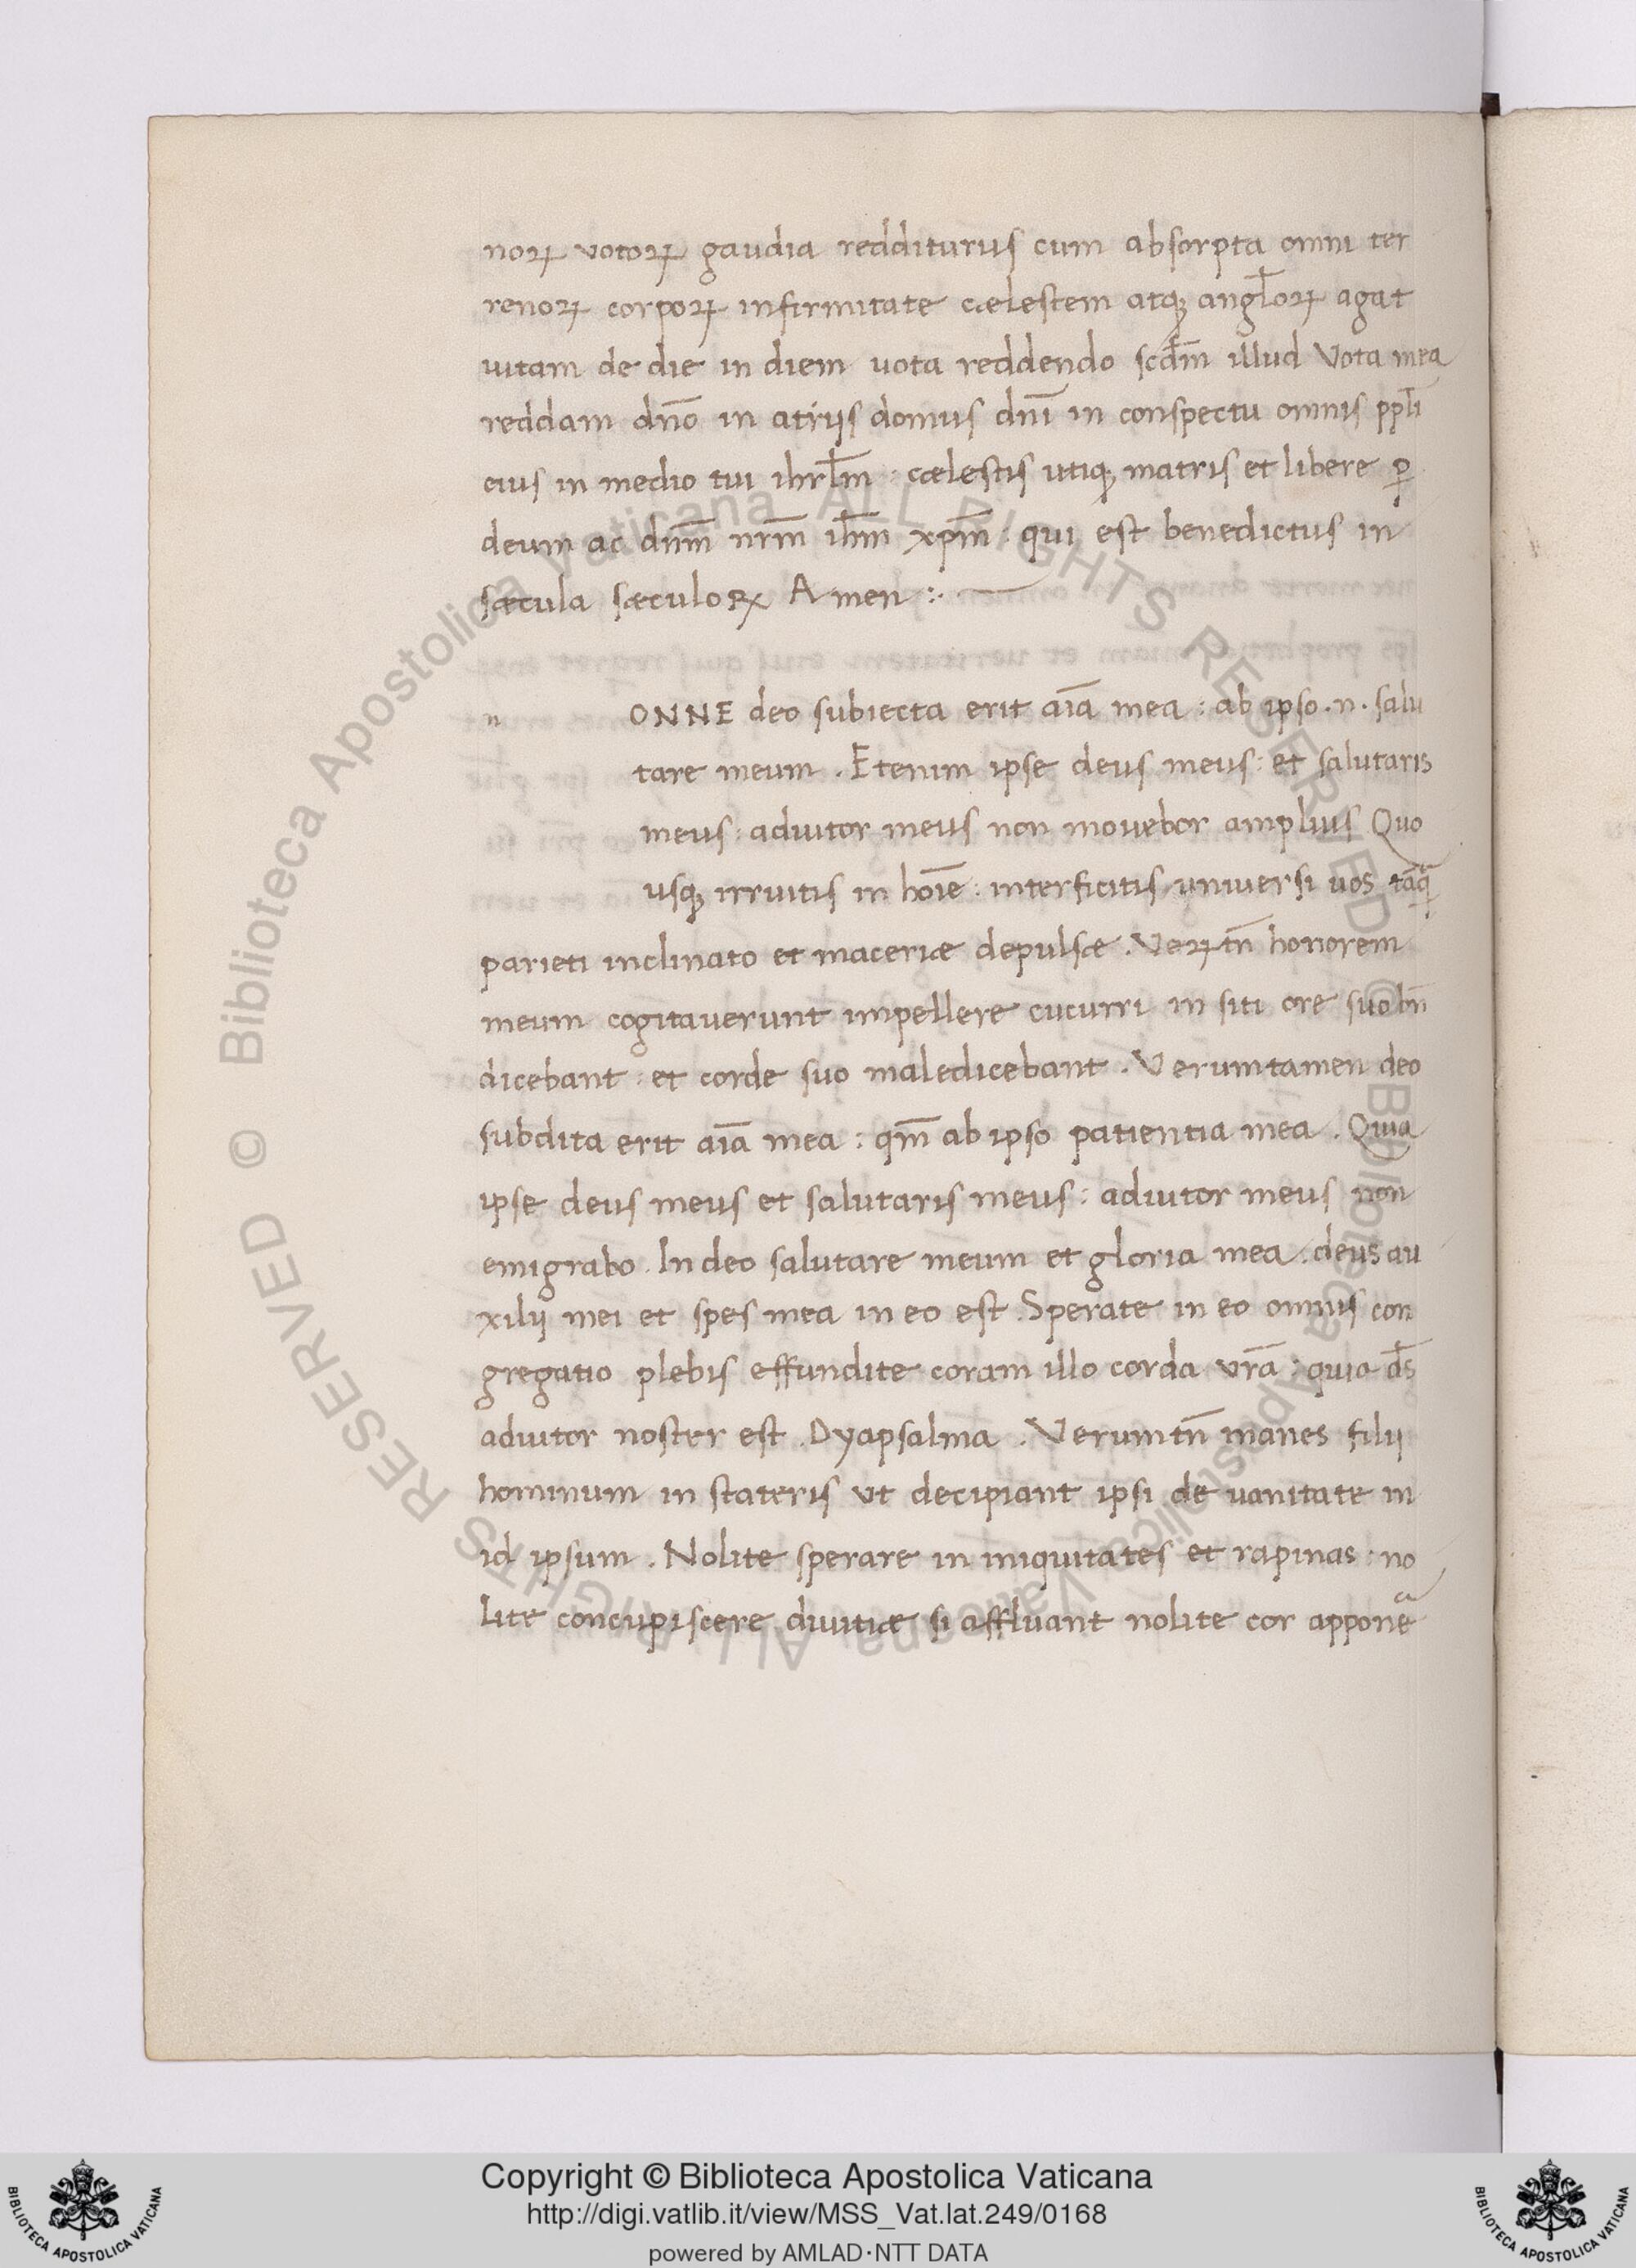 noꝝ votoꝝ gaudia redditurus cum absorpta omni ter
renoꝝ corpoꝝ infirmitate cælestem atqꝫ angl̄oꝝ agat
uitam de die in diem uota reddendo scd̄m illud Vota mea
reddam dn̄o in atrijs domus dn̄i in conspectu omnis ppl̄i
eius in medio tui ihrl̄m : cælestis utiqꝫ matris et libere ꝑ
deum ac dn̄m nr̄m ih̄m xp̄m : qui est benedictus in
sæcula sæculoꝝ Amen :·
n ONNE deo subiecta erit aīa mea : ab ipso .n. salu
tare meum . Etenim ipse deus meus : et salutaris
meus : adiutor meus non movebor amplius Quo
usqꝫ irruitis in hoīe : interficitis universi uos tāꝙ
parieti inclinato et maceriæ depulsæ . Veꝝtn̄ honorem
meum cogitaverunt impellere cucurri in siti ore suo bn̄
dicebant : et corde suo maledicebant . Veruntamen deo
subdita erit aīa mea : qm̄ ab ipso patientia mea . Quia
ipse deus meus et salutaris meus : adiutor meus non
emigrabo . In deo salutare meum et gloria mea : deus au
xilij mei et spes mea in eo est . Sperate in eo omnis con
gregatio plebis effundite coram illo corda vr̄a : quia ds̄
adiutor noster est . Dyapsalma . Verumtn̄ manes filij
hominum in stateris ut decipiant ipsi de uanitate in
id ipsum . Nolite sperare in iniquitates et rapinas : no
lite concupiscere divitiæ si affluant nolite cor appone
Biblioteca Apostolica Vaticana ALL RIGHTS RESERVED ©
Biblioteca Apostolica Vaticana ALL RIGHTS RESERVED ©
Copyright © Biblioteca Apostolica Vaticana
http://digi.vatlib.it/view/MSS_Vat.lat.249/0168
powered by AMLAD·NTT DATA
BIBLIOTECA APOSTOLICA VATICANA
BIBLIOTECA APOSTOLICA VATICANA